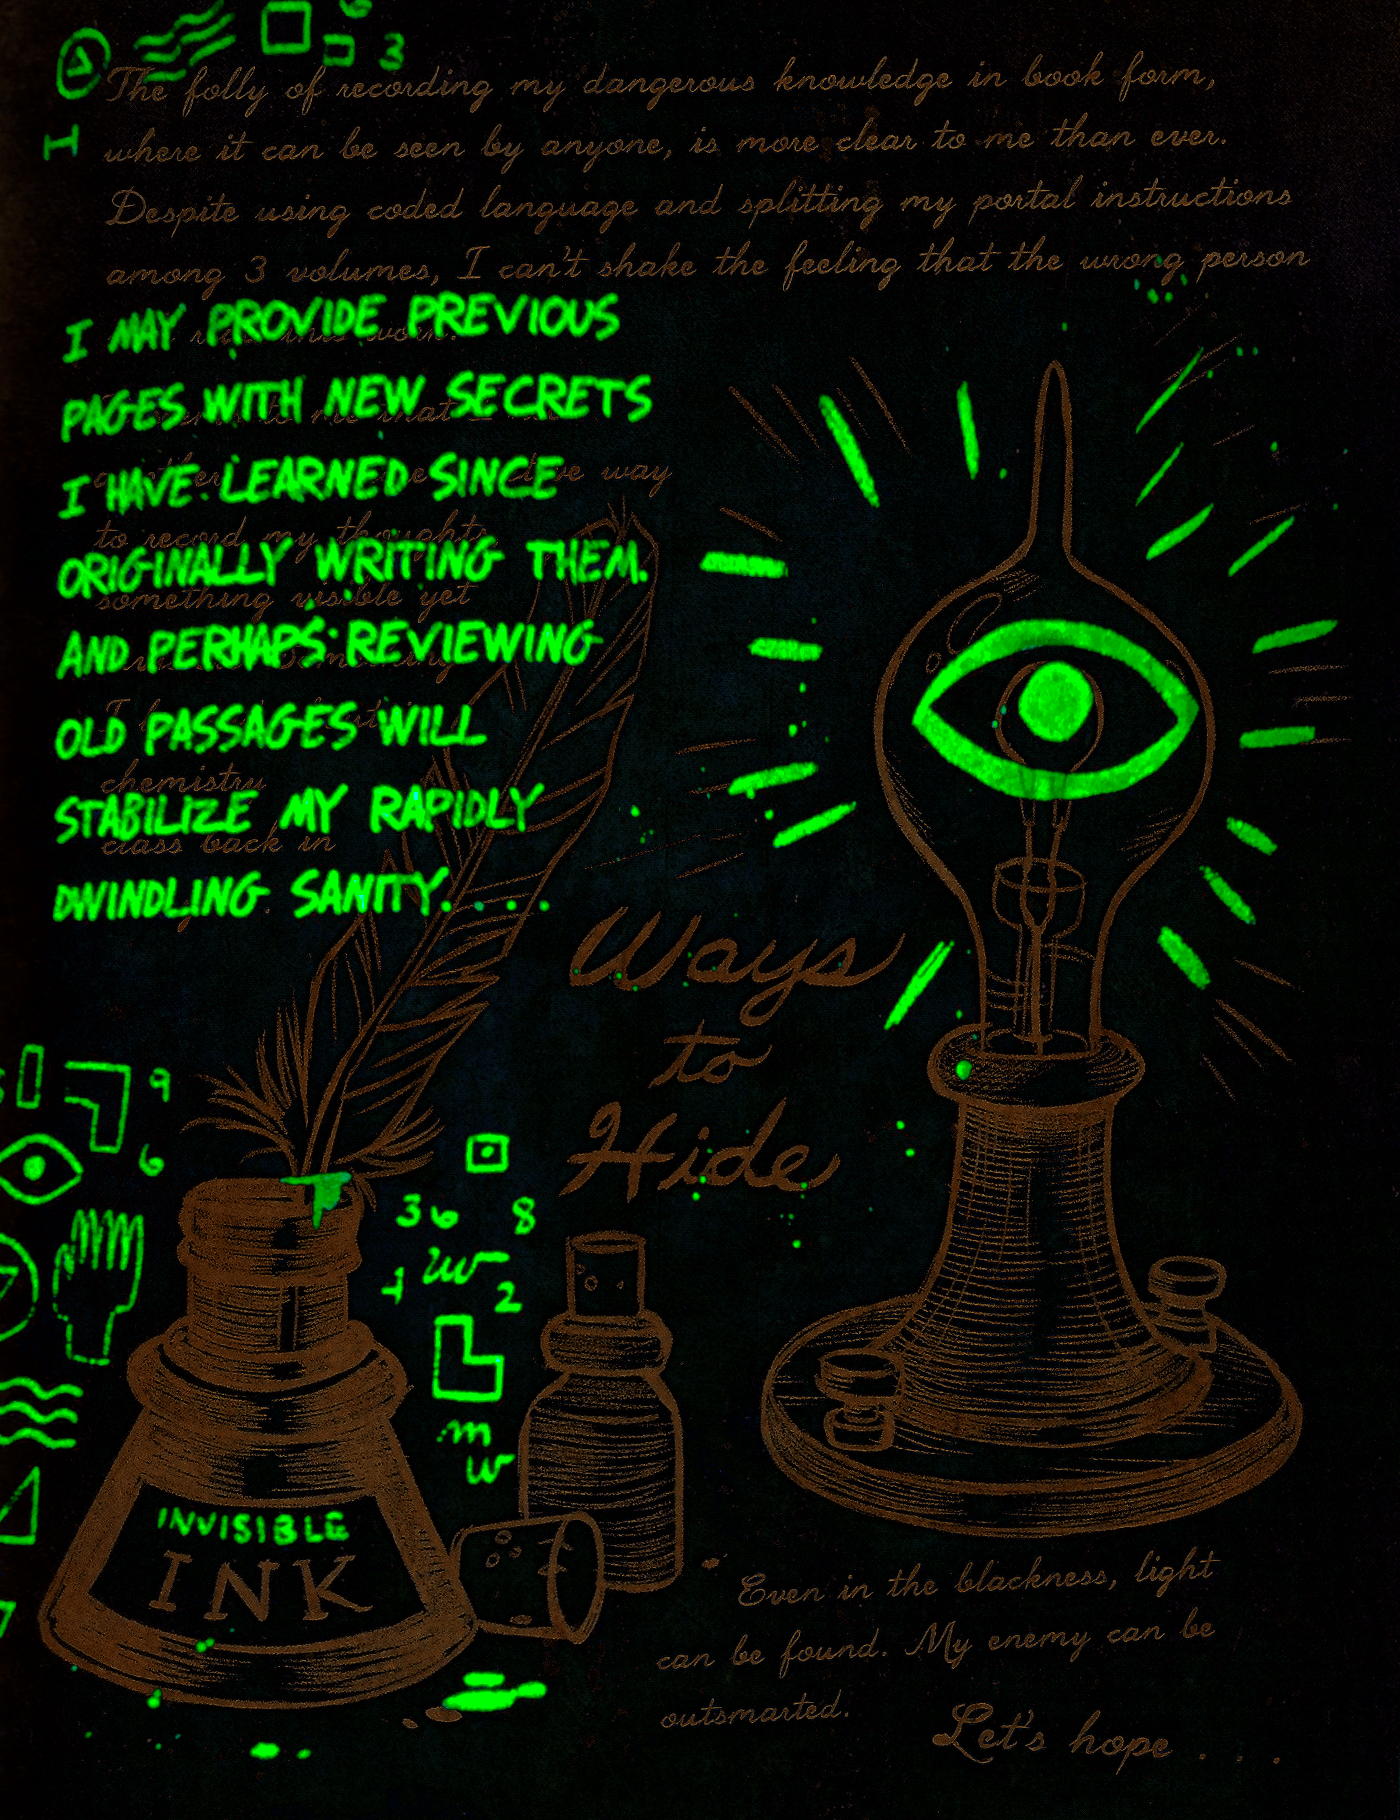 3
The folly of recording my dangerous knowledge in book form,
where it can be seen by anyone, is more clear to me than ever.
Despite using coded language and splitting my portal instructions
among 3 volumes, I can't shake the feeling that the wrong person
I MAY PROVIDE PREVIOUS
PAGES WITH NEW SECRETS
way
I HAVE LEARNED SINCE
to record my thoughts
ORIGINALLY WRITING THEM.
something visible yet
AND PERHAPS REVIEWING
OLD PASSAGES WILL
chemistry
STABILIZE MY RAPIDLY
class back in
DWINDLING SANITY. . . .
Ways
to
Hide
9
6
36 8
2
INVISIBLE
INK
Even in the blackness, light
can be found. My enemy can be
outsmarted.
Let's hope . . .